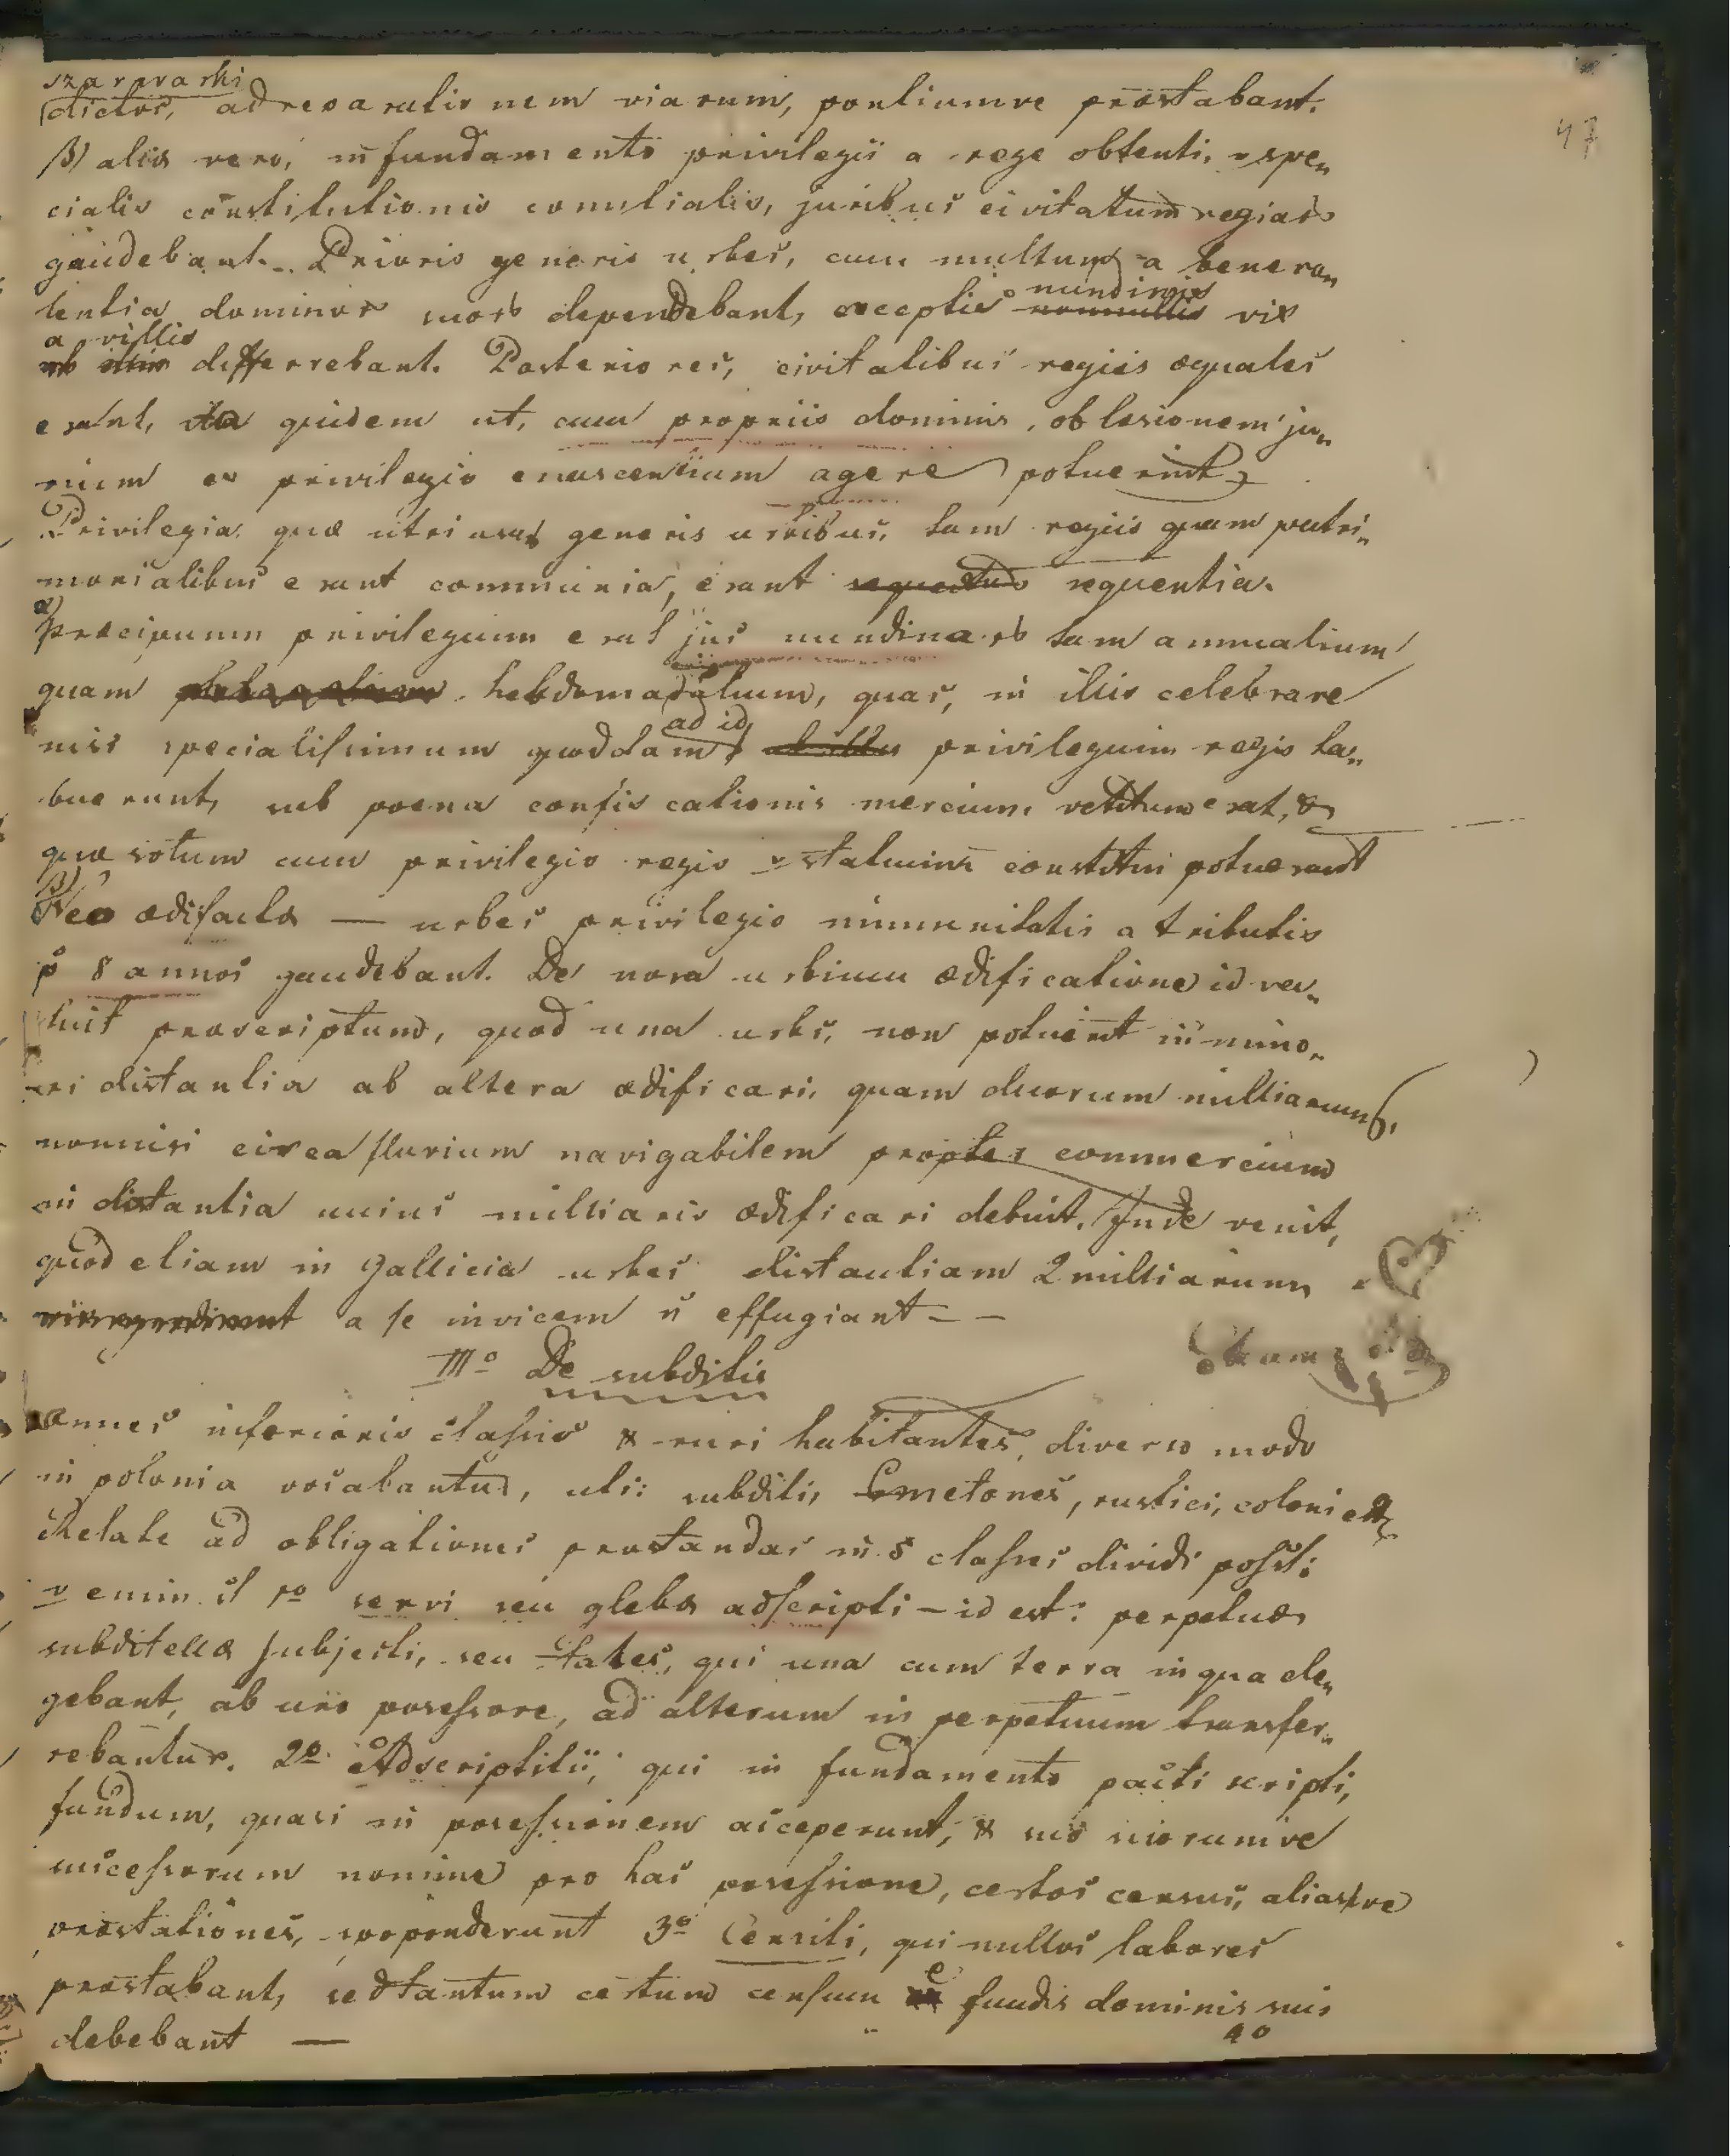 szarwarki
dictos, ad reparationem viarum, pontiumve præstabant.
47
β) aliæ vero, in fundamento privilegii a rege obtenti, v spe„
cialis constitutionis comitialis, juribus civitatum regiar
gaudebant. Prioris generis urbes, cum multum a benevo„
lentia dominor suorb dependebant, exceptis nundinis nonnullis vix
a villis
ab differrebant. Posteriores, civitatibus regiis æquales
erant, ita quidem ut, cum propriis dominis, ob læsionem ju„
rium ex privilegio enascentium agere potuerint
Privilegia, quæ utriusq generis urbibus, tam regiis quam patri„
monialibus erant communia, erant sequentia.
α) Præcipuum privilegium erat jus nundinarb tam annualium
quam hebdomadalium, quas, in illis celebrare
nisi specialissimum quoddam ad id privilegium regis ha„
buerunt, sub poena confiscationis mercium, vetitum erat, &
quæ solum cum privilegio regis v statuum constitui potuerant
β) Neo ædificatæ — urbes privilegio immunitatis a tributis
p 8 annos gaudebant. De nova urbium ædificatione id ve„
nit præscriptum, quod una urbs, non potuerit in mino„
ri distantia ab altera ædificari, quam duorum milliarium,
nonnisi circa fluvium navigabilem propter commercium
in distantia unius milliaris ædificari debuit. Inde venit,
quod etiam in Gallicia urbes distantiam 2 milliarium
a se invicem ñ effugiant - -
III° De subditis
omnes inferioris classis & ruri habitantes, diverso modo
in polonia vocabantur, uti: subditi, Cmetones, rustici, coloni etc
Relate ad obligationes præstandas in 5 classes dividi possut:
v enim st 1º servi seu glebæ adscripti — id est: perpetuæ
subditelæ subjecti, seu tales, qui una cum terra in qua de„
gebant, ab uno posessore, ad alterum in perpetuum transfer„
rebantur. 2º Adscriptitii, qui in fundamento pacti scripti,
fundum, quasi in posessionem acceperunt, & suo suorumve
successorum nomine pro hac posessione, certos census, aliasve
præstationes, spoponderunt 3º Censiti, qui nullos labores
præstabant, sed tantum certum censum e fundis dominis suis
debebant —
40